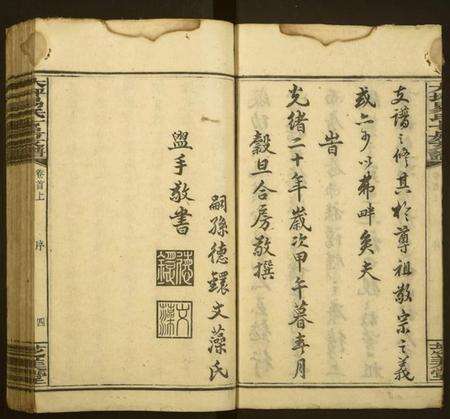 支譜之修其於尊祖敬宗之義
或亦可以弗畔矣夫
旹
光緒二十年歲次甲午暮春月
穀旦合房敬撰
嗣孫德鐶文藻氏
盥手敬書
德鐶
文藻
卷首上
序
四